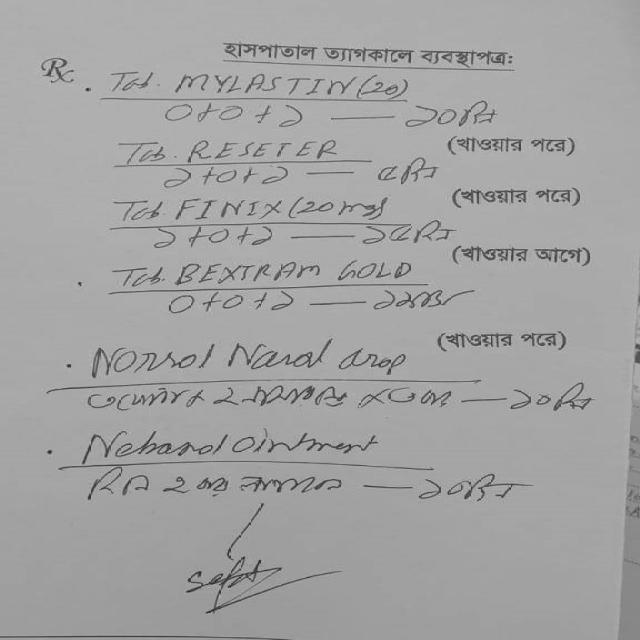 হাসপাতাল ত্যাগকালে ব্যবস্থাপত্র:
Rx
. Tab. MYLASTIN (20)
০+০+১ — ১০দিন
(খাওয়ার পরে)
Tab. RESETER
১+০+১ — ৫দিন
(খাওয়ার পরে)
Tab. FINIX (20 mg)
১+০+১ — ১৫দিন
(খাওয়ার আগে)
. Tab. BEXTRAM GOLD
০+০+১ —
(খাওয়ার পরে)
. Norsol Nasal drop
২ — ১০দিন
. Nebanol ointment
দিনে ২ বার — ১০দিন